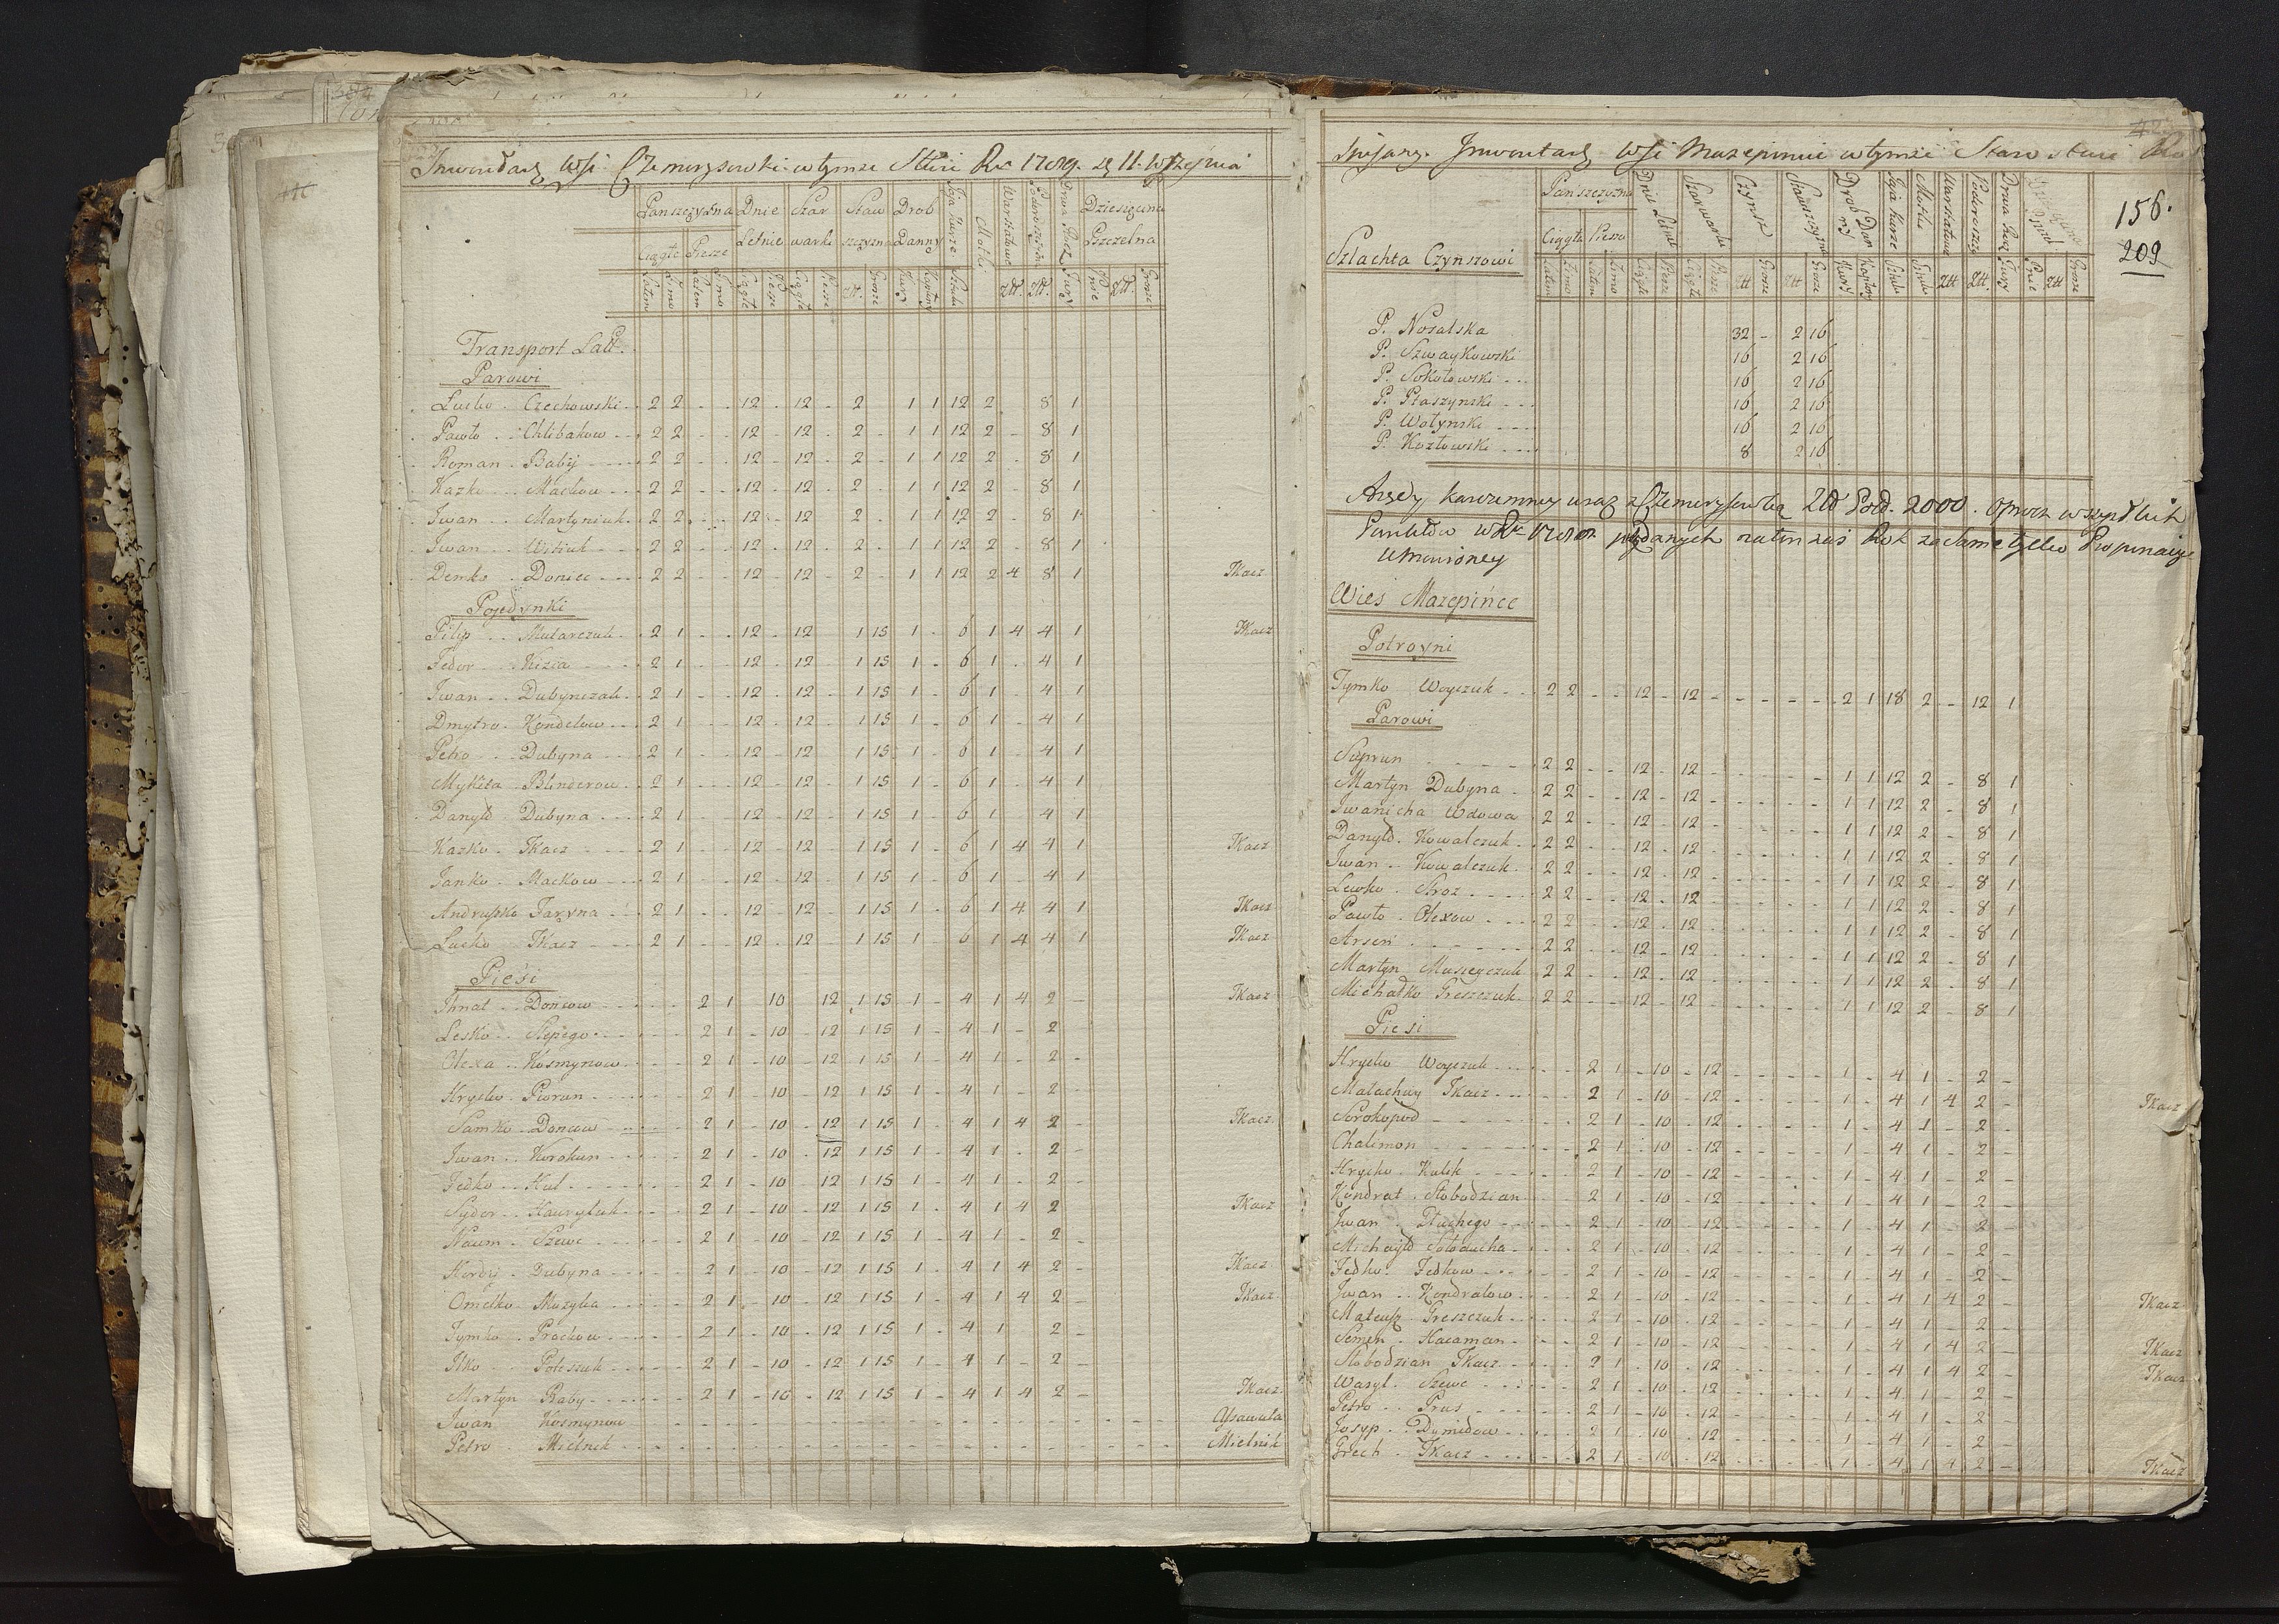 Inwentarz Wsi Czemerysowki w tymze Stwie Ru 1789. 11. Wrzesnia
Panszczyzna Dnie Szar Staw Drob Jaja Kurze Motki Warsztatowe Podorosczyzna Drwa Fur Dziesięcina
Ciągłe Piesze Letnie warki szczyzna Danny Pszczelna
Latem Zimo Latem Zimo Ciągłe Piesze Ciągłe Piesze Zł. Grosze Kury Kapłony Sztuki Złł. Złł. Fury Pnie Złł. Grosze
Transport Latt.
Parowi
Lucko Czechowski 2 2 12 12 2 1 1 12 2 8 1
Pawło Chlibakow 2 2 12 12 2 1 1 12 2 8 1
Roman Babij 2 2 12 12 2 1 1 12 2 8 1
Kazko Mackow 2 2 12 12 2 1 1 12 2 8 1
Iwan Martyniuk 2 2 12 12 2 1 1 12 2 8 1
Iwan Witiuk 2 2 12 12 2 1 1 12 2 8 1
Demko Doniec 2 2 12 12 2 1 1 12 2 4 8 1 Tkacz
Pojedynki
Pilip Mularczuk 2 1 12 12 1 15 1 6 1 4 4 1 Tkacz
Fedor Kizia 2 1 12 12 1 15 1 6 1 4 1
Iwan Dubynczak 2 1 12 12 1 15 1 6 1 4 1
Dmytro Kondelow 2 1 12 12 1 15 1 6 1 4 1
Petro Dubyna 2 1 12 12 1 15 1 6 1 4 1
Mykita Blinderow 2 1 12 12 1 15 1 6 1 4 1
Danyło Dubyna 2 1 12 12 1 15 1 6 1 4 1
Kazko Tkacz 2 1 12 12 1 15 1 6 1 4 4 1 Tkacz
Janko Mackow 2 1 12 12 1 15 1 6 1 4 1
Andruszko Jaryna 2 1 12 12 1 15 1 6 1 4 4 1 Tkacz
Lucko Tkacz 2 1 12 12 1 15 1 6 1 4 4 1 Tkacz
Piesi
Ihnat Doncow 2 1 10 12 1 15 1 4 1 4 2 Tkacz
Lesko Slepego 2 1 10 12 1 15 1 4 1 2
Olexa Kosmynow 2 1 10 12 1 15 1 4 1 2
Hrycko Piorun 2 1 10 12 1 15 1 4 1 2
Samko Doncow 2 1 10 12 1 15 1 4 1 4 2 Tkacz
Iwan Korokun 2 1 10 12 1 15 1 4 1 2
Fedko Kul 2 1 10 12 1 15 1 4 1 2
Sydor Hawryluk 2 1 10 12 1 15 1 4 1 4 2 Tkacz
Naum Szewc 2 1 10 12 1 15 1 4 1 2
Hordij Dubyna 2 1 10 12 1 15 1 4 1 4 2 Tkacz
Omelko Muzyka 2 1 10 12 1 15 1 4 1 4 2 Tkacz
Tymko Prockow 2 1 10 12 1 15 1 4 1 2
Ilko Poleszuk 2 1 10 12 1 15 1 4 1 2
Martyn Baby 2 1 10 12 1 15 1 4 1 4 2 Tkacz
Iwan Kosmynow Assawuła
Petro Mielnik Mielnik
Inwentarz Wsi Mazepiniec w tymże Starostwie
156.
209
Panszczyzna Dnie Letnie Szarwarki Czynsz Stawszczyzna Drob Dan Jaja Kurze Motki Warsztatowe Podorosczyz Drwa Fur
Ciągła Piesza
Szlachta Czynszowi
Latem Zimo Latem Zimo Ciągłe Piesze Ciągłe Piesze Złł Grosze Złł Grosze Kury Kapłony Sztuk Sztuk Złł Złł. Fury Pnie Złł Grosze
P. Nosalska 32 2 16
P. Szwaykowski 16 2 16
P. Sokołowski 16 2 16
P. Ptaszynski 16 2 16
P. Wołynski 16 2 16
P. Kozłowski 8 2 16
Arędy karczemney wraz z Czemerysowką Złł Pol. 2000. oprocz wszystkich
Punktów w Ru podanych na ten zas Rok za same tylko Propinacye
umowioney
Wies Mazepińce
Potroyni
Tymko Woyczuk 2 2 12 12 2 1 18 2 12 1
Parowi
Suprun 2 2 12 12 1 1 12 2 8 1
Martyn Dubyna 2 2 12 12 1 1 12 2 8 1
Iwanicha Wdowa 2 2 12 12 1 1 12 2 8 1
Danyło Kowalczuk 2 2 12 12 1 1 12 2 8 1
Iwan Kowalczuk 2 2 12 12 1 1 12 2 8 1
Lewko Stroz 2 2 12 12 1 1 12 2 8 1
Pawło Olexow 2 2 12 12 1 1 12 2 8 1
Arsen 2 2 12 12 1 1 12 2 8 1
Martyn Museyczuk 2 2 12 12 1 1 12 2 8 1
Michałko Greszczuk 2 2 12 12 1 1 12 2 8 1
Piesi
Hrycko Woyczuk 2 1 10 12 1 4 1 2
Małachwy Tkacz 2 1 10 12 1 4 1 4 2 Tkacz
Sorokopod 2 1 10 12 1 4 1 2
Chalimon 2 1 10 12 1 4 1 2
Hrycko Kulik 2 1 10 12 1 4 1 2
Kondrat Słobodzian 2 1 10 12 1 4 1 2
Iwan Głuchego 2 1 10 12 1 4 1 2
Michayło Sołoducha 2 1 10 12 1 4 1 2
Fedko Fedkow 2 1 10 12 1 4 1 2
Iwan Kondratow 2 1 10 12 1 4 1 4 2 Tkacz
Mateusz Greszczuk 2 1 10 12 1 4 1 2
Semen Hacaman 2 1 10 12 1 4 1 4 2 Tkacz
Słobodzian Tkacz 2 1 10 12 1 4 1 4 2 Tkacz
Wasyl Szewc 2 1 10 12 1 4 1 2
Petro Prus 2 1 10 12 1 4 1 2
Josyp Dymidow 2 1 10 12 1 4 1 2
Grech Tkacz 2 1 10 12 1 4 1 4 2 Tkacz